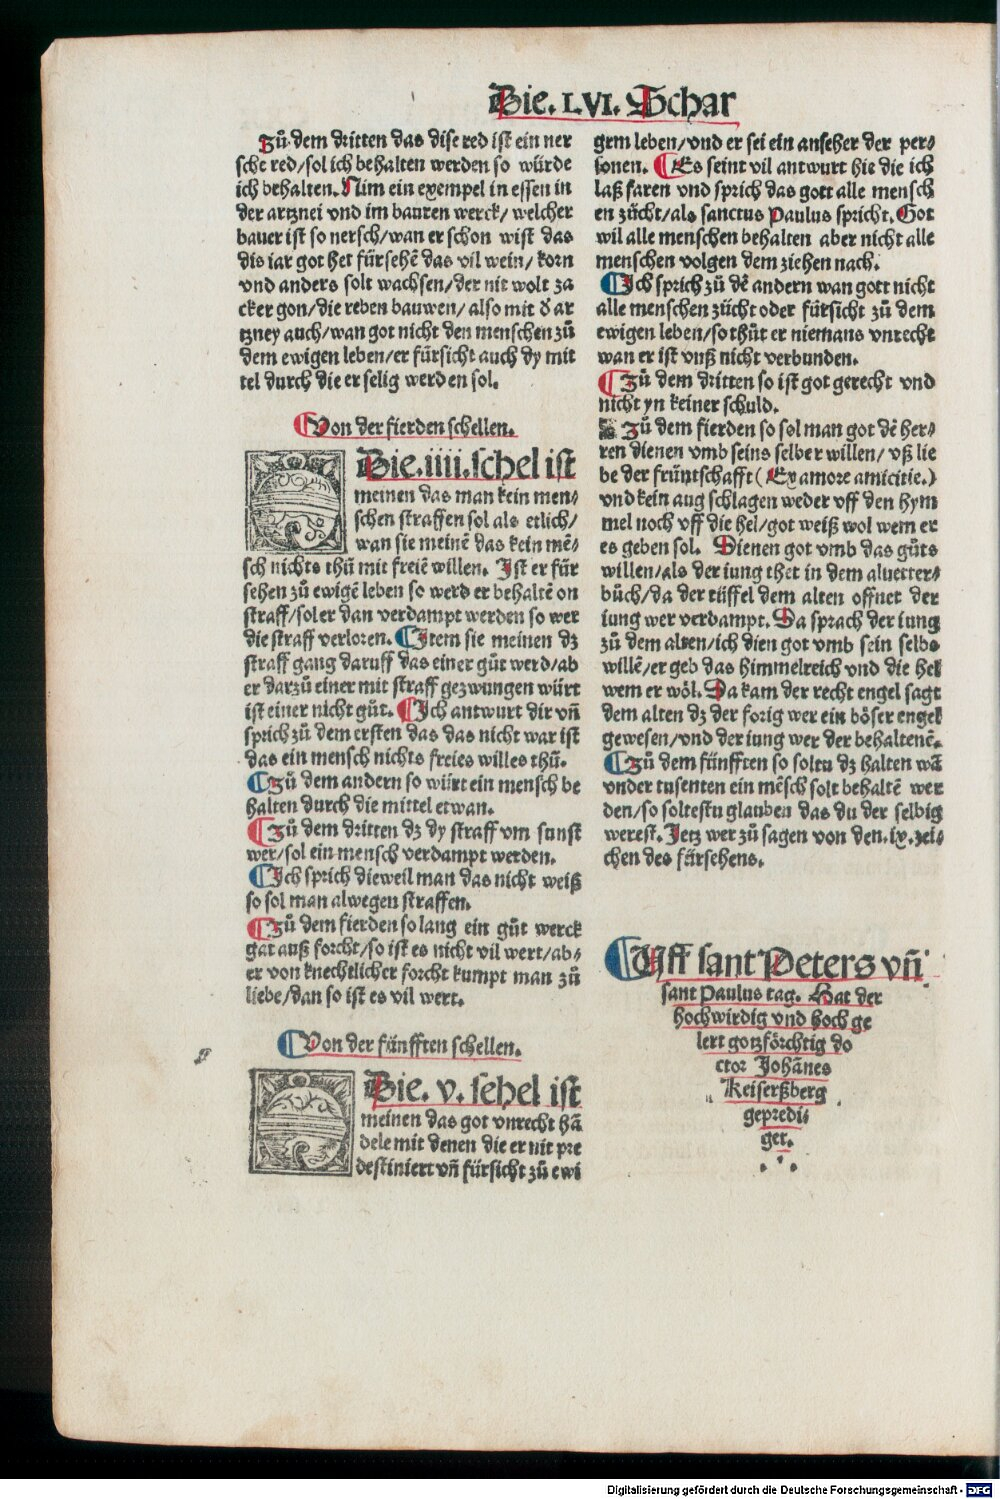 Die. LVI. Schar
Zů dem dritten das dise red ist ein ner
sche red/sol ich behalten werden so würde
ich behalten. Nim ein exempel in essen in
der artznei vnd im bauren werck/ welcher
bauer ist so nersch/wan er schon wist das
dis iar got het fürsehē das vil wein/ korn
vnd anders solt wachsen/der nit wolt za
cker gon/die reben bauwen/ also mit d̕ ar
tzney auch/wan got nicht den menschen zů
dem ewigen leben/er fürsicht auch dy mit
tel durch die er selig werden sol.
¶Von der fierden schellen.
Die.iiii.schel ist
meinen das man kein men⸗
schen straffen sol als etlich/
wan sie meinē das kein mē⸗
sch nichts thů mit freiē willen. Ist er für
sehen zů ewigē leben so werd er behaltē on
straff/sol er dan verdampt werden so wer
die straff verloren. ¶Item sie meinen dz
straff gang daruff das einer gůt werd/ab
er darzů einer mit straff gezwungen würt
ist einer nicht gůt. ¶Ich antwurt dir vñ
sprich zů dem ersten das das nicht war ist
das ein mensch nichts freies willes thů.
¶Zů dem andern so würt ein mensch be
halten durch die mittel etwan.
¶Zů dem dritten dz dy straff vm sunst
wer/sol ein mensch verdampt werden.
¶Ich sprich dieweil man das nicht weiß
so sol man alwegen straffen.
¶Zů dem fierden so lang ein gůt werck
gat auß forcht/so ist es nicht vil wert/ab⸗
er von knechtlicher forcht kumpt man zů
liebe/dan so ist es vil wert.
¶Von der fünfften schellen.
Die. v. sehel ist
meinen das got vnrecht hā
dele mit denen die er nit pre
destiniert vñ fürsicht zů ewi
grm leben/vnd er sei ein anseher der per⸗
sonen. ¶Es seint vil antwurt hie die ich
laß faren vnd sprich das gott alle mensch
en zücht/als sanctus Paulus spricht. Got
wil alle menschen behalten aber nicht alle
menschen volgen dem ziehen nach.
¶Ich sprich zů dē andern wan gott nicht
alle menschen zücht oder fürsicht zů dem
ewigen leben/so thůt er niemans vnrecht
wan er ist vnß nicht verbunden.
¶Zů dem dritten so ist got gerecht vnd
nicht yn keiner schuld.
Zů dem fierden so sol man got dē her⸗
ren dienen vmb seins selber willen/ vß lie
be der früntschafft (Ex amore amicitie.)
vnd kein aug schlagen weder vff den hym
mel noch vff die hel/got weiß wol wem er
es geben sol. Dienen got vmb das gůts
willen/als der iung thet in dem altuetter⸗
bůch/da der tüffel dem alten offnet der
iung wer verdampt. Da sprach der iung
zů dem alten/ich dien got vmb sein selbs
willē/er geb das himmelreich vnd die hel
wem er wöl. Da kam der recht engel sagt
dem alten dz der forig wer ein böser engel
gewesen/vnd der iung wer der behaltenē.
¶Zů dem fünfften so soltu dz halten wā
vnder tusenten ein mēsch solt behaltē wer
den/so soltestu glauben das du der selbig
werest. Jetz wer zů sagen von den.ix.zei⸗
chen des fürsehens.
¶Uff sant Peters vñ
sant Paulus tag. Hat der
hochwirdig vnd hoch ge
lert gotzförchtig do
ctor Johānes
Keiserßberg
gepredi⸗
get.
Digitalisierung gefördert durch die Deutsche Forschungsgemeinschaft - DFG